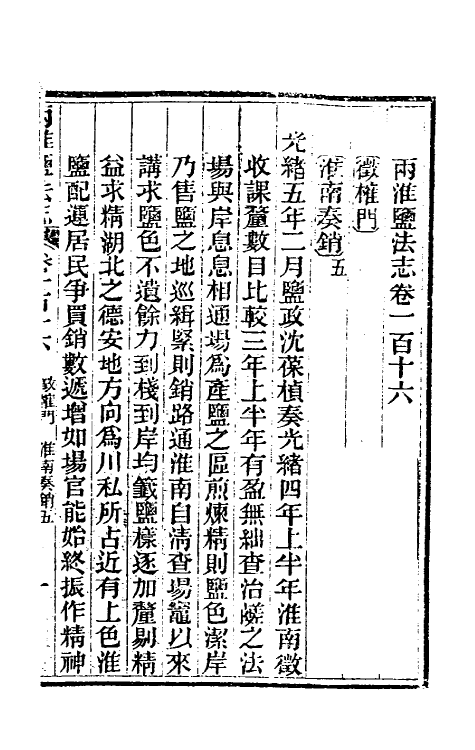 兩淮鹽法志卷一百十六
徵榷門
淮南奏銷五
光緒五年二月鹽政沈葆楨奏光緒四年上半年淮南徵
收課釐數目比較三年上半年有盈無絀查治鹺之法
場與岸息息相通場為產鹽之區煎煉精則鹽色潔岸
乃售鹽之地巡緝緊則銷路通淮南自清查場竈以來
講求鹽色不遺餘力到棧到岸均籤鹽樣逐加釐剔精
益求精湖北之德安地方向為川私所占近有上色淮
鹽配運居民爭買銷數遞增如場官能始終振作精神
兩淮鹽法志 卷一百十六 徵榷門 淮南奏銷五 一